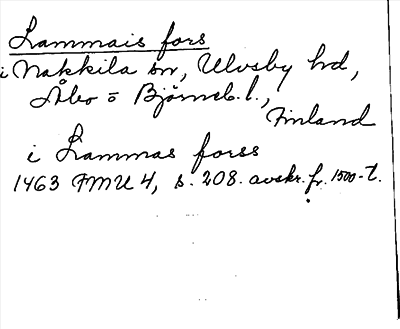 Lammais fors
i Nakkila sn, Ulvsby hd,
Åbo o Björneb. l.,
Finland
i Lammas forss
1463 FMU 4, s. 208. avskr. fr. 1500-t.